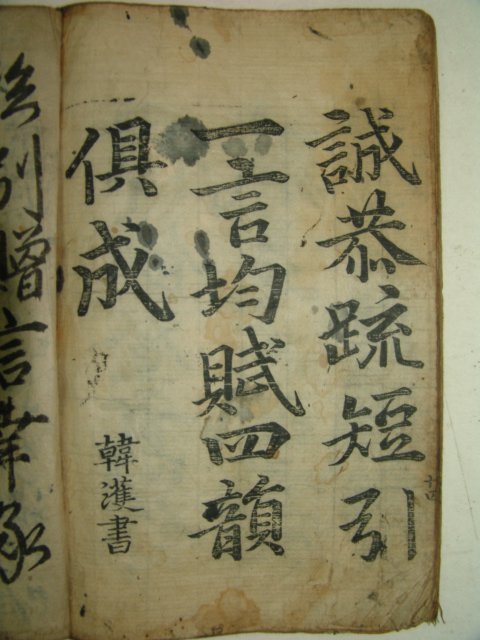 誠恭疏短引
一言均賦四韻
俱成
韓濩書
臨別贈言幸承